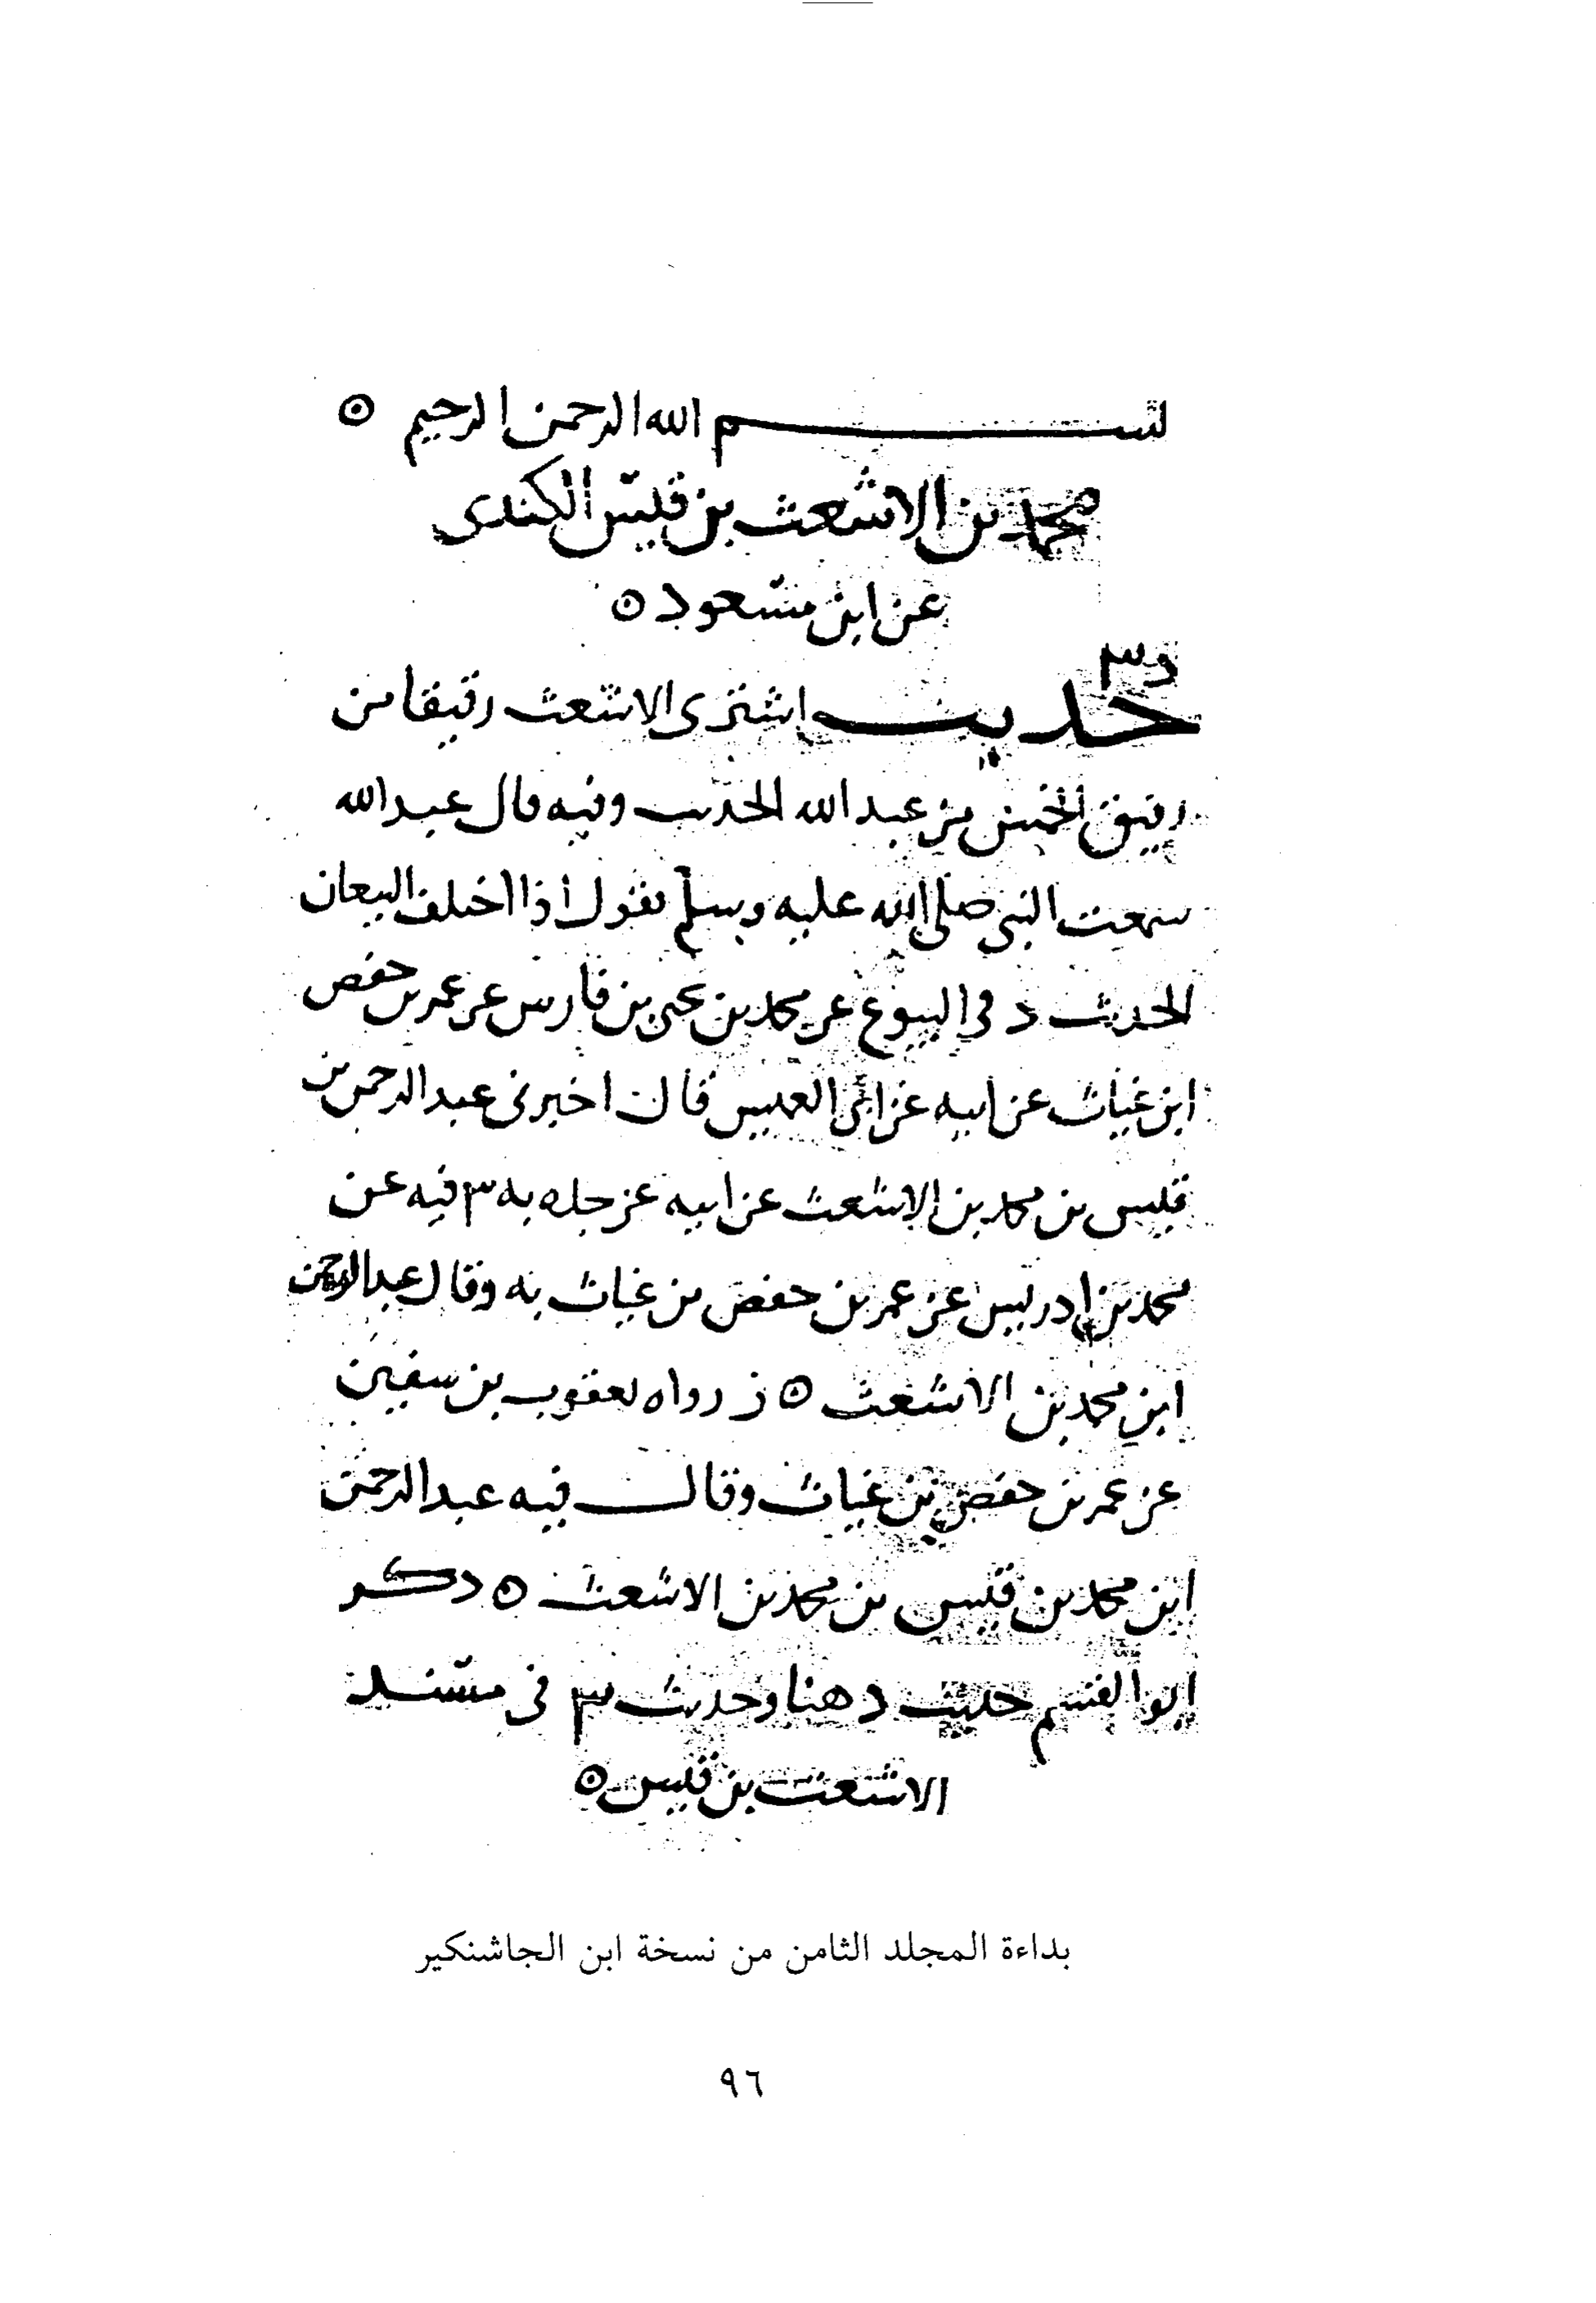 بسم الله الرحمن الرحيم ⊙
محمد بن الاشعث بن قيس الكندى
عن ابن مسعود ⊙
د س
حديث اشترى الاشعث رقيقا من
رقيق الخمس من عبد الله الحديث وفيه قال عبد الله
سمعت النبى صلى الله عليه وسلم يقول اذا اختلف البيعان
الحديث د فى البيوع عن محمد بن يحيى بن فارس عن عمر بن حفص
ابن غياث عن ابيه عن ابى العميس قال اخبرنى عبد الرحمن بن
قيس بن محمد بن الاشعث عن ابيه عن جده به س فيه عن
محمد بن ادريس عن عمر بن حفص بن غياث به وقال عبد الرحمن
ابن محمد بن الاشعث ⊙ ز رواه يعقوب بن سفين
عن عمر بن حفص بن غياث وقال فيه عبد الرحمن
ابن محمد بن قيس بن محمد بن الاشعث ⊙ ذكر
ابو القسم حديث د هنا وحديث س فى مسند
الاشعث بن قيس ⊙
بداءة المجلد الثامن من نسخة ابن الجاشنكير
٩٦